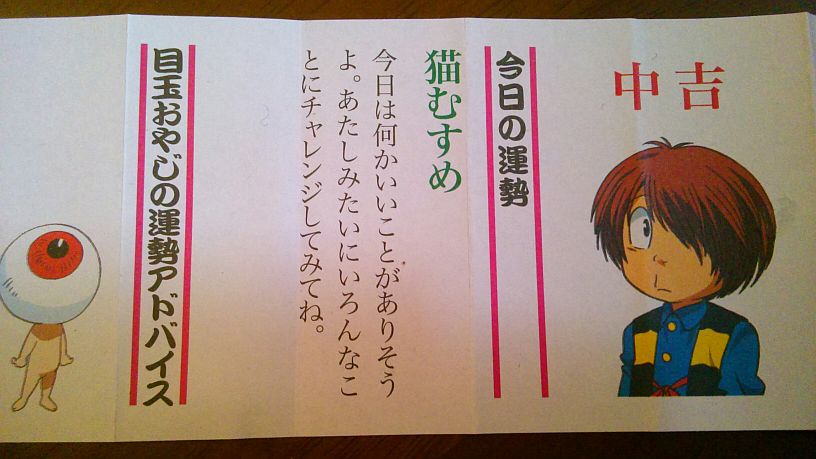 中吉
今日の運勢
猫むすめ
今日は何かいいことがありそう
よ。あたしみたいにいろんなこ
とにチャレンジしてみてね。
目玉おやじの運勢アドバイス